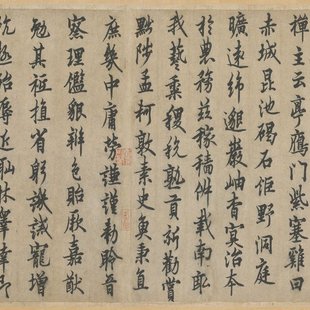 禪主云亭鴈門紫塞雞田
赤城昆池碣石鉅野洞庭
曠遠綿邈巖岫杳冥治本
於農務茲稼穡俶載南畝
我藝黍稷稅熟貢新勸賞
黜陟孟軻敦素史魚秉直
庶幾中庸勞謙謹勑聆音
察理鑑貌辯色貽厥嘉猷
勉其祗植省躬譏誡寵增
抗極殆辱近恥林皋幸即